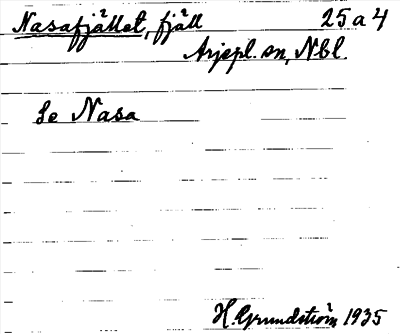 Nasafjället, fjäll 25 a 4
Arjepl. sn, Nbl.
Se Nasa
H. Grundström 1935